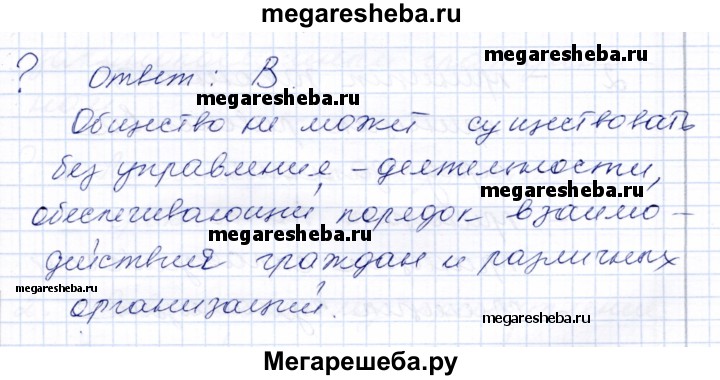 megaresheba.ru
? Ответ: В
megaresheba.ru
megaresheba.ru
Общество не может существовать
без управления - деятельности,
megaresheba.ru
обеспечивающий порядок взаимо-
megaresheba.ru
действий граждан и различных
megaresheba.ru
организаций.
megaresheba.ru
Мегарешеба.ру